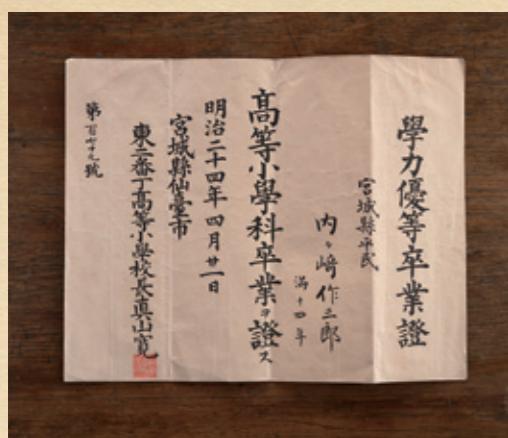 學力優等卒業證
宮城縣平民
内ヶ崎作三郎
満十四年
高等小學科卒業ヲ證ス
明治二十四年四月廿一日
宮城縣仙臺市
東二番丁高等小學校長真山寛
第百七十九號